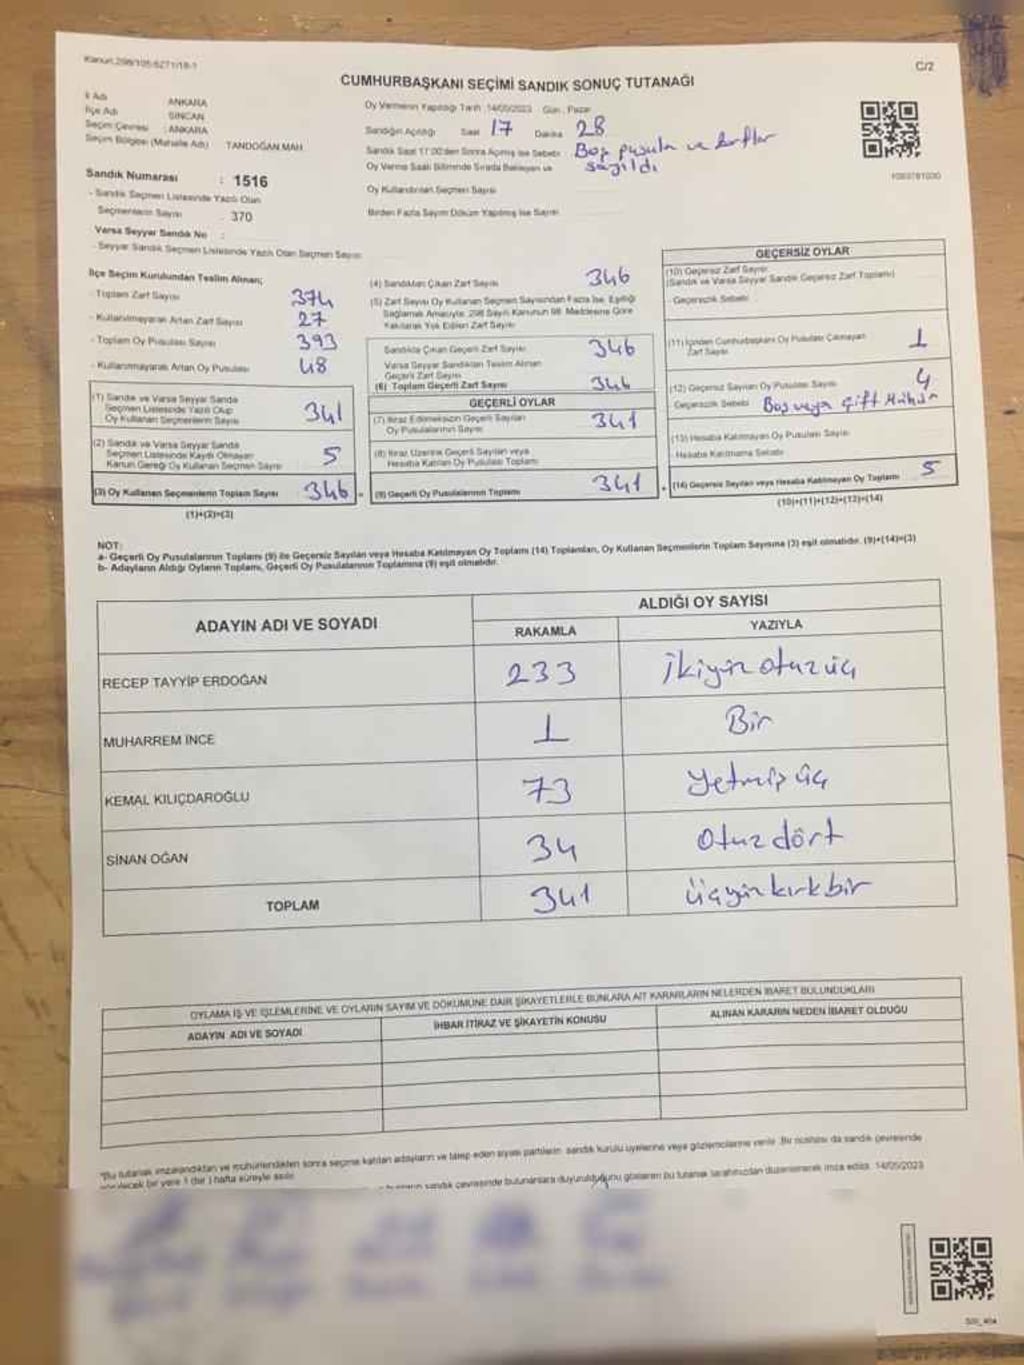 Kanun:298/105-6271/18-1
C/2
CUMHURBAŞKANI SEÇİMİ SANDIK SONUÇ TUTANAĞI
İl Adı ANKARA
İlçe Adı SİNCAN
Seçim Çevresi : ANKARA
Seçim Bölgesi (Mahalle Adı) TANDOĞAN MAH.
Sandık Numarası : 1516
- Sandık Seçmen Listesinde Yazılı Olan
Seçmenlerin Sayısı 370
Varsa Seyyar Sandık No :
- Seyyar Sandık Seçmen Listesinde Yazılı Olan Seçmen Sayısı
Oy Vermenin Yapıldığı Tarih :14/05/2023 Gün : Pazar
Sandığın Açıldığı Saat 17 Dakika 28
Sandık Saat 17:00'den Sonra Açılmış İse Sebebi: Boş pusula ve zarflar
sayıldı
Oy Verme Saati Bitiminde Sırada Bekleyen ve
Oy Kullandırılan Seçmen Sayısı
Birden Fazla Sayım Döküm Yapılmış İse Sayısı
İlçe Seçim Kurulundan Teslim Alınan;
- Toplam Zarf Sayısı 374
- Kullanılmayarak Artan Zarf Sayısı 27
- Toplam Oy Pusulası Sayısı 393
- Kullanılmayarak Artan Oy Pusulası 48
(1) Sandık ve Varsa Seyyar Sandık
Seçmen Listesinde Yazılı Olup
Oy Kullanan Seçmenlerin Sayısı 341
(2) Sandık ve Varsa Seyyar Sandık
Seçmen Listesinde Kayıtlı Olmayan
Kanun Gereği Oy Kullanan Seçmen Sayısı 5
(3) Oy Kullanan Seçmenlerin Toplam Sayısı 346
(1)+(2)=(3)
(4) Sandıktan Çıkan Zarf Sayısı 346
(5) Zarf Sayısı Oy Kullanan Seçmen Sayısından Fazla İse, Eşitliği
Sağlamak Amacıyla; 298 Sayılı Kanunun 98. Maddesine Göre
Yakılarak Yok Edilen Zarf Sayısı
Sandıkta Çıkan Geçerli Zarf Sayısı 346
Varsa Seyyar Sandıktan Teslim Alınan
Geçerli Zarf Sayısı
(6) Toplam Geçerli Zarf Sayısı 346
GEÇERLİ OYLAR
(7) İtiraz Edilmeksizin Geçerli Sayılan
Oy Pusulalarının Sayısı 341
(8) İtiraz Üzerine Geçerli Sayılan veya
Hesaba Katılan Oy Pusulası Toplamı
(9) Geçerli Oy Pusulalarının Toplamı 341
GEÇERSİZ OYLAR
(10) Geçersiz Zarf Sayısı
(Sandık ve Varsa Seyyar Sandık Geçersiz Zarf Toplamı)
- Geçersizlik Sebebi :
(11) İçinden Cumhurbaşkanı Oy Pusulası Çıkmayan
Zarf Sayısı 1
(12) Geçersiz Sayılan Oy Pusulası Sayısı 4
Geçersizlik Sebebi : Boş veya Çift Mühür
(13) Hesaba Katılmayan Oy Pusulası Sayısı
- Hesaba Katılmama Sebebi :
(14) Geçersiz Sayılan veya Hesaba Katılmayan Oy Toplamı 5
(10)+(11)+(12)+(13)=(14)
NOT:
a- Geçerli Oy Pusulalarının Toplamı (9) ile Geçersiz Sayılan veya Hesaba Katılmayan Oy Toplamı (14) Toplamları, Oy Kullanan Seçmenlerin Toplam Sayısına (3) eşit olmalıdır. (9)+(14)=(3)
b- Adayların Aldığı Oyların Toplamı, Geçerli Oy Pusulalarının Toplamına (9) eşit olmalıdır.
ADAYIN ADI VE SOYADI
ALDIĞI OY SAYISI
RAKAMLA YAZIYLA
RECEP TAYYİP ERDOĞAN 233 İkiyüz otuz üç
MUHARREM İNCE 1 Bir
KEMAL KILIÇDAROĞLU 73 Yetmiş üç
SİNAN OĞAN 34 Otuz dört
TOPLAM 341 üçyüz kırk bir
OYLAMA İŞ VE İŞLEMLERİNE VE OYLARIN SAYIM VE DÖKÜMÜNE DAİR ŞİKAYETLERLE BUNLARA AİT KARARLARIN NELERDEN İBARET BULUNDUKLARI
ADAYIN ADI VE SOYADI İHBAR İTİRAZ VE ŞİKAYETİN KONUSU ALINAN KARARIN NEDEN İBARET OLDUĞU
"Bu tutanak imzalandıktan ve mühürlendikten sonra seçime katılan adayların ve talep eden siyasi partilerin sandık kurulu üyelerine veya gözlemcilerine verilir. Bir nüshası da sandık çevresinde
görülecek bir yere 1 (bir) hafta süreyle asılır.
sandık çevresinde bulunanlara duyurulduğunu gösteren bu tutanak tarafımızdan düzenlenerek imza edildi. 14/05/2023